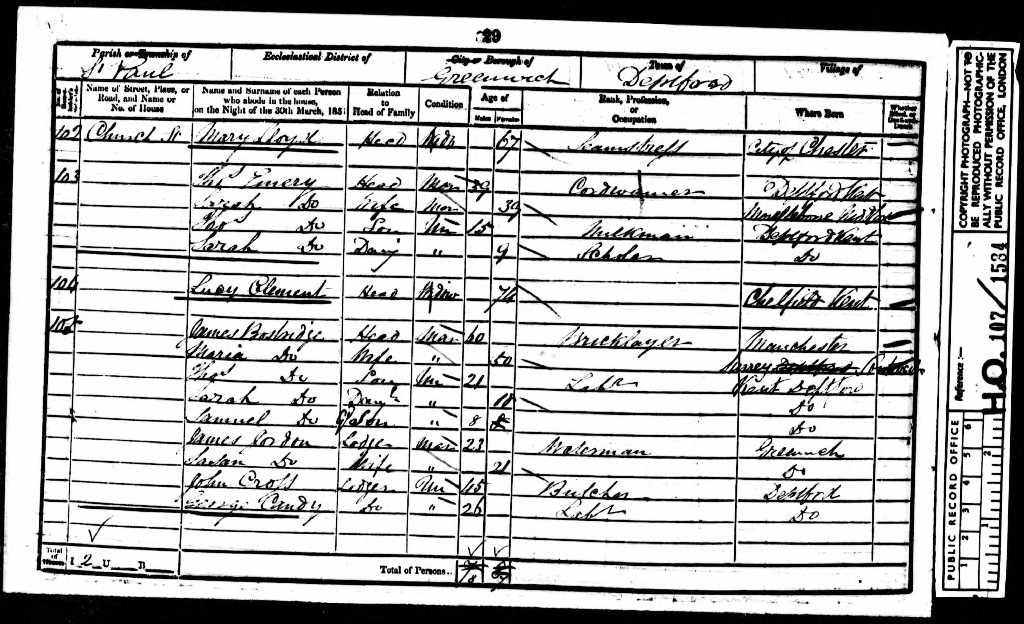 29
Parish or Township of
St Paul
Ecclesiastical District of
City or Borough of
Greenwich
Town of
Deptford
Village of
Name of Street, Place, or Road, and Name or No. of House
Name and Surname of each Person who abode in the house, on the Night of the 30th March, 1851
Relation to Head of Family
Condition
Age of
Males Females
Rank, Profession, or Occupation
Where Born
Whether Blind, or Deaf-and-Dumb
102 Church St Mary Lloyd Head Wido 67 Seamstress City of Chester
103 Thos Emery Head Mar 39 Cordwainer Deptford Kent
Sarah Do Wife Mar 39
Thos Do Son Un 15 Milkman Deptford Kent
Sarah Do Daur 9 Scholar Do
104 Lucy Clement Head Widow 74 Chelsfield Kent
105 James Bosbridge Head Mar 60 Bricklayer Manchester
Maria Do Wife " 50 Surrey
Thos Do Son Un 21 Labr Kent Deptford
Sarah Do Daur " 18 Do
Samuel Do G/Son " 8 Do
James Gordon Lodger Mar 23 Waterman Greenwich
Susan Do Wife " 21 Do
John Cross Lodger Un 45 Butcher Deptford
George Candy Do " 26 Labr Do
Total of Houses I 2 U B
Total of Persons
8 7
COPYRIGHT PHOTOGRAPH—NOT TO BE REPRODUCED PHOTOGRAPHICALLY WITHOUT PERMISSION OF THE PUBLIC RECORD OFFICE, LONDON
Reference:—
H.O. 107/1584
PUBLIC RECORD OFFICE
1 2 3 4 5 6
1 2